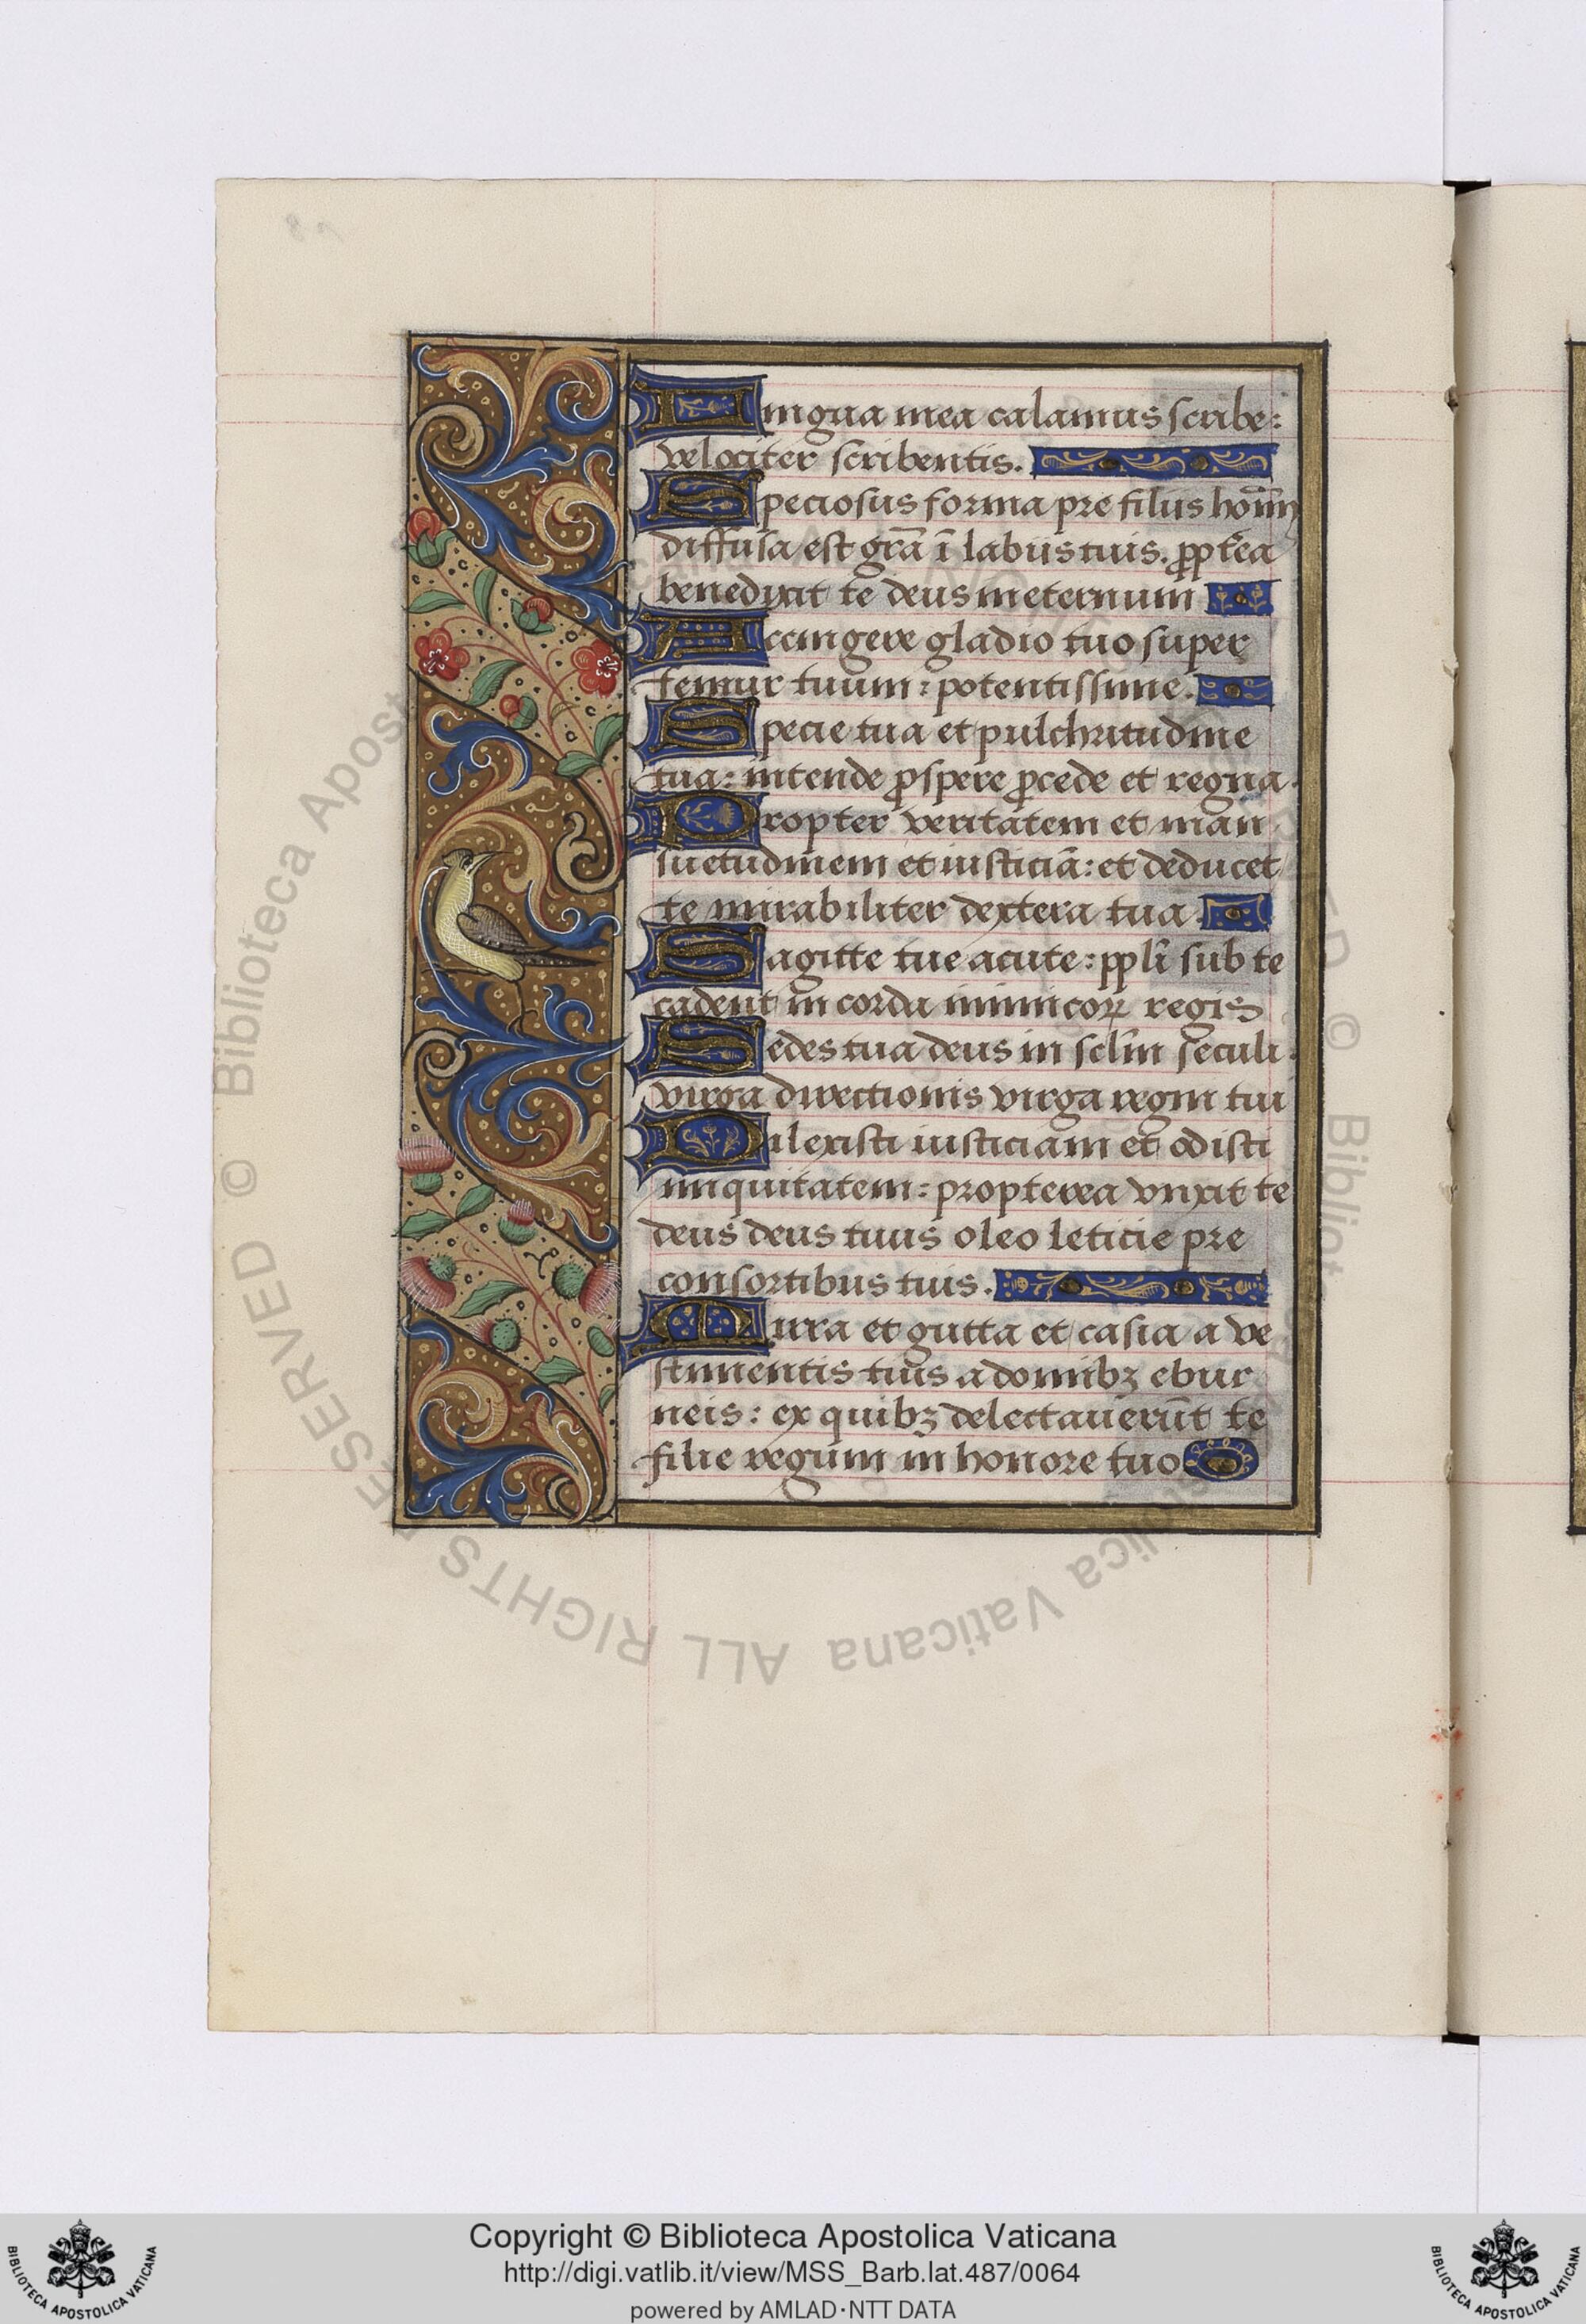 Lingua mea calamus scribe:
velociter scribentis.
Speciosus forma pre filiis hoı̄m
diffusa est grã ī labiis tuis. ꝓpt̃ea
benedixit te deus in eternum
Accingere gladio tuo super
femur tuum: potentissime.
Specie tua et pulchritudine
tua: intende ꝓspere ꝓcede et regna.
Propter veritatem et man
suetudinem et iusticiã: et deducet
te mirabiliter dextera tua
Sagitte tue acute: ppl̃i sub te
cadent in corda inimicoꝝ regis
Sedes tua deus in scl̃m seculi.
virga directionis virga regni tui
Dilexisti iusticiam et odisti
iniquitatem: propterea vnxit te
deus deus tuus oleo leticie pre
consortibus tuis.
Mirra et gutta et casia a ve
stimentis tuis a domibꝫ ebur
neis: ex quibꝫ delectauerũt te
filie regum in honore tuo
© Biblioteca Apostolica Vaticana ALL RIGHTS RESERVED
Copyright © Biblioteca Apostolica Vaticana
http://digi.vatlib.it/view/MSS_Barb.lat.487/0064
powered by AMLAD·NTT DATA
BIBLIOTECA APOSTOLICA VATICANA
BIBLIOTECA APOSTOLICA VATICANA